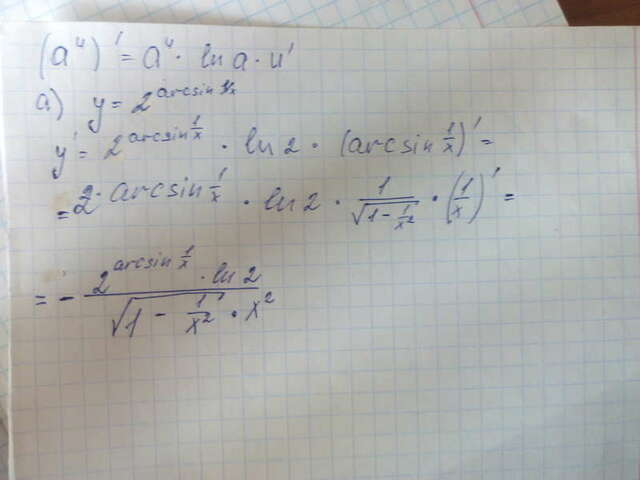 (a^u)' = a^u · ln a · u'
a) y = 2^{arcsin 1/x}
y' = 2^{arcsin 1/x} · ln 2 · (arcsin 1/x)' =
= 2^{· arcsin 1/x} · ln 2 · 1/√(1 - 1/x²) · (1/x)' =
= - (2^{arcsin 1/x} · ln 2)/(√(1 - 1/x²) · x²)